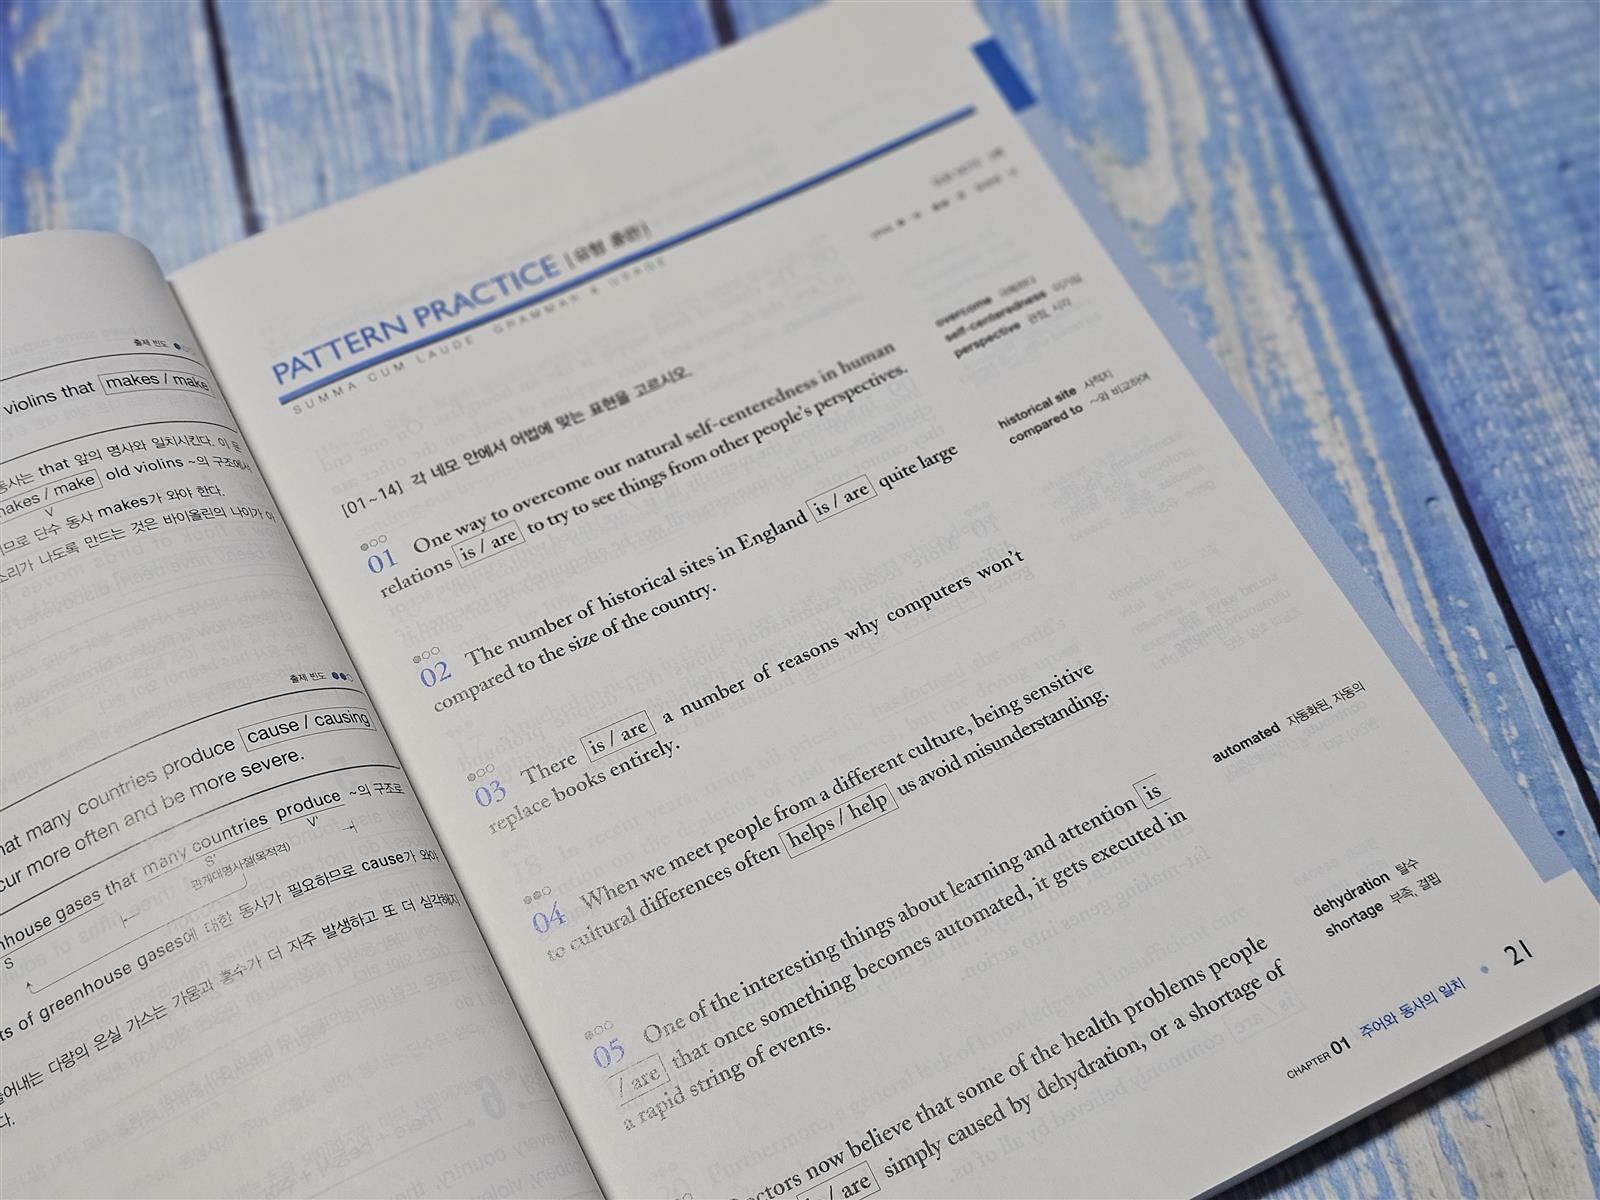 출제 빈도
violins that makes / make
동사는 that 앞의 명사와 일치시킨다. 이 문
makes / make old violins ~의 구조에서
V
므로 단수 동사 makes가 와야 한다.
소리가 나도록 만드는 것은 바이올린의 나이가
출제 빈도
hat many countries produce cause / causing
cur more often and be more severe.
nhouse gases that many countries produce ~의 구조로
S S' V'
관계대명사절(목적격)
ts of greenhouse gases에 대한 동사가 필요하므로 cause가 와야
들어내는 다량의 온실 가스는 가뭄과 홍수가 더 자주 발생하고 또 더 심각해지
다.
PATTERN PRACTICE [유형 훈련]
SUMMA CUM LAUDE GRAMMAR & USAGE
[01~14] 각 네모 안에서 어법에 맞는 표현을 고르시오.
01 One way to overcome our natural self-centeredness in human
relations is / are to try to see things from other people's perspectives.
overcome 극복하다
self-centeredness 이기심
perspective 관점, 시각
02 The number of historical sites in England is / are quite large
compared to the size of the country.
historical site 사적지
compared to ~와 비교하여
03 There is / are a number of reasons why computers won't
replace books entirely.
04 When we meet people from a different culture, being sensitive
to cultural differences often helps / help us avoid misunderstanding.
05 One of the interesting things about learning and attention is
/ are that once something becomes automated, it gets executed in
a rapid string of events.
automated 자동화된, 자동의
octors now believe that some of the health problems people
is / are simply caused by dehydration, or a shortage of
dehydration 탈수
shortage 부족, 결핍
CHAPTER 01 주어와 동사의 일치 • 21